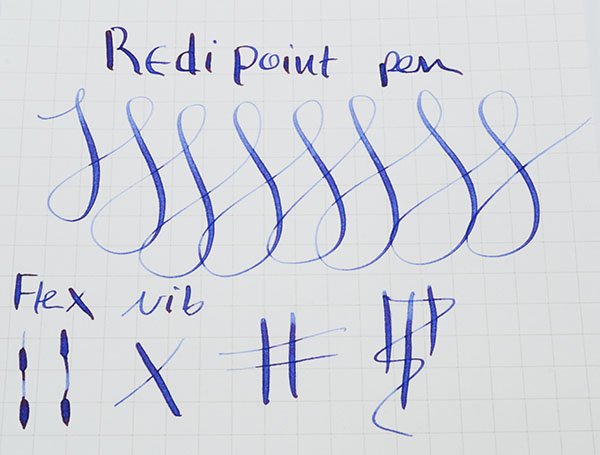 Redi point pen
Flex nib